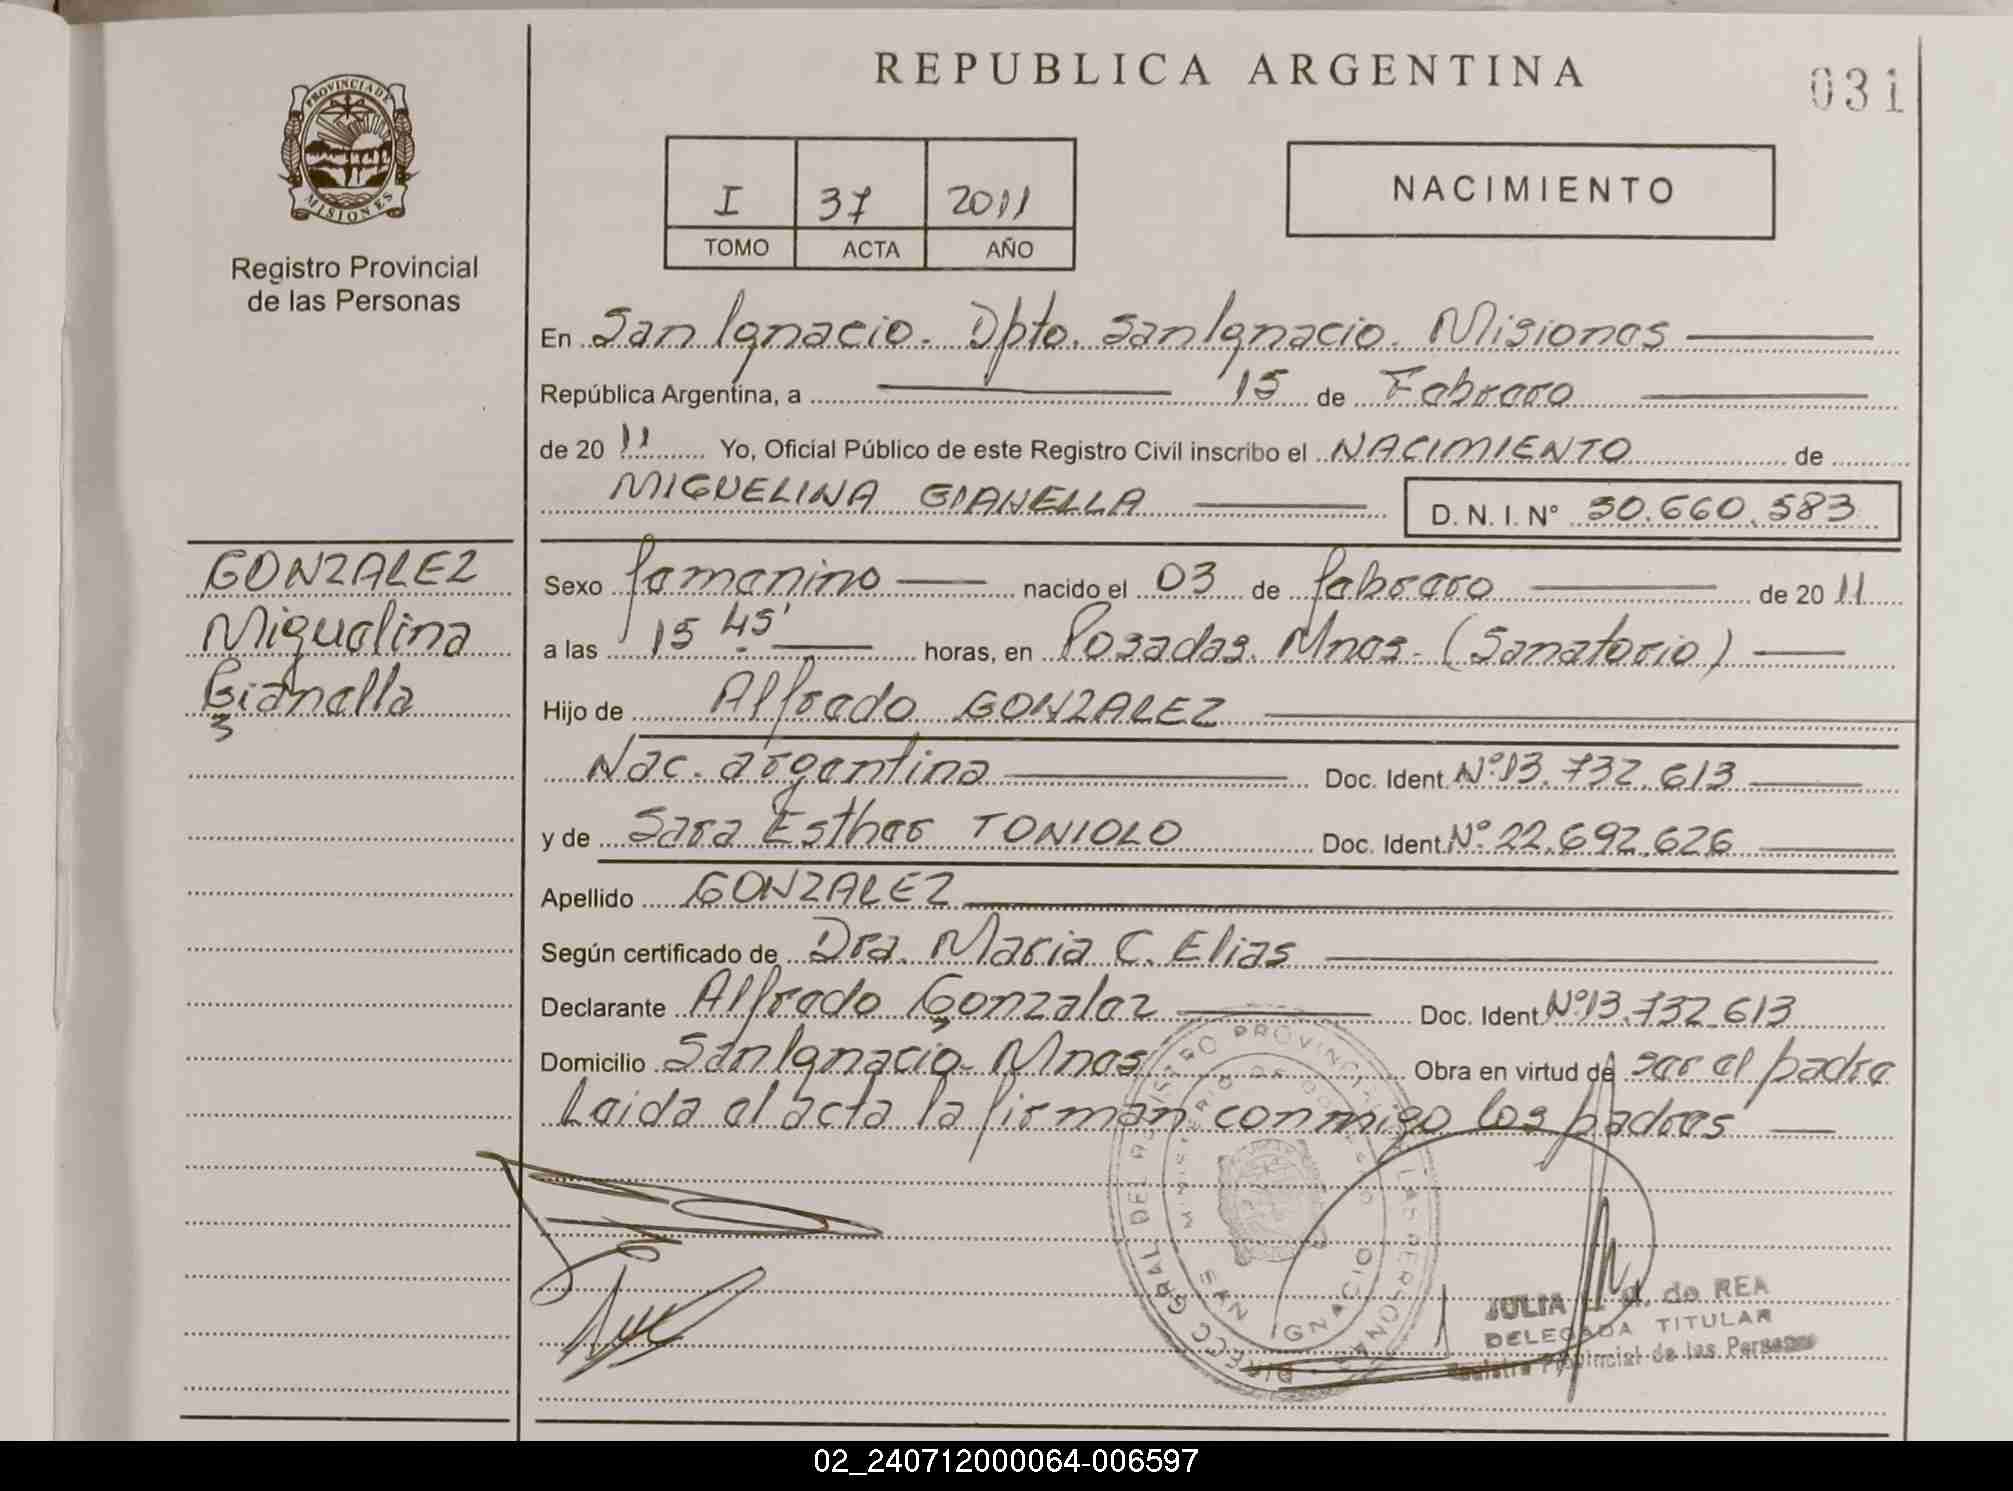 REPUBLICA ARGENTINA
031
PROVINCIA DE
MISIONES
Registro Provincial
de las Personas
I 37 2011
TOMO ACTA AÑO
NACIMIENTO
En San Ignacio. Dpto. San Ignacio. Misiones
República Argentina, a 15 de Febrero
de 20 11 Yo, Oficial Público de este Registro Civil inscribo el NACIMIENTO de
MIGUELINA GIANELLA D. N. I. N° 50.660.583
GONZALEZ
Miguelina
Gianella
Sexo femenino nacido el 03 de febrero de 20 11
a las 15 45' horas, en Posadas. Mnes. (Sanatorio)
Hijo de Alfredo GONZALEZ
Nac. argentina Doc. Ident. N° 13.732.613
y de Sara Esther TONIOLO Doc. Ident. N° 22.692.626
Apellido GONZALEZ
Según certificado de Dra. Maria C. Elias
Declarante Alfredo Gonzalez Doc. Ident. N° 13.732.613
Domicilio San Ignacio. Mnes Obra en virtud de ser el padre
Leida el acta la firman conmigo los padres
DIRECC GRAL DEL REGISTRO PROVINCIAL DE LAS PERSONAS
MINISTERIO DE GOBIERNO
SAN IGNACIO
JULIA de REA
DELEGADA TITULAR
Registro Provincial de las Personas
02_240712000064-006597